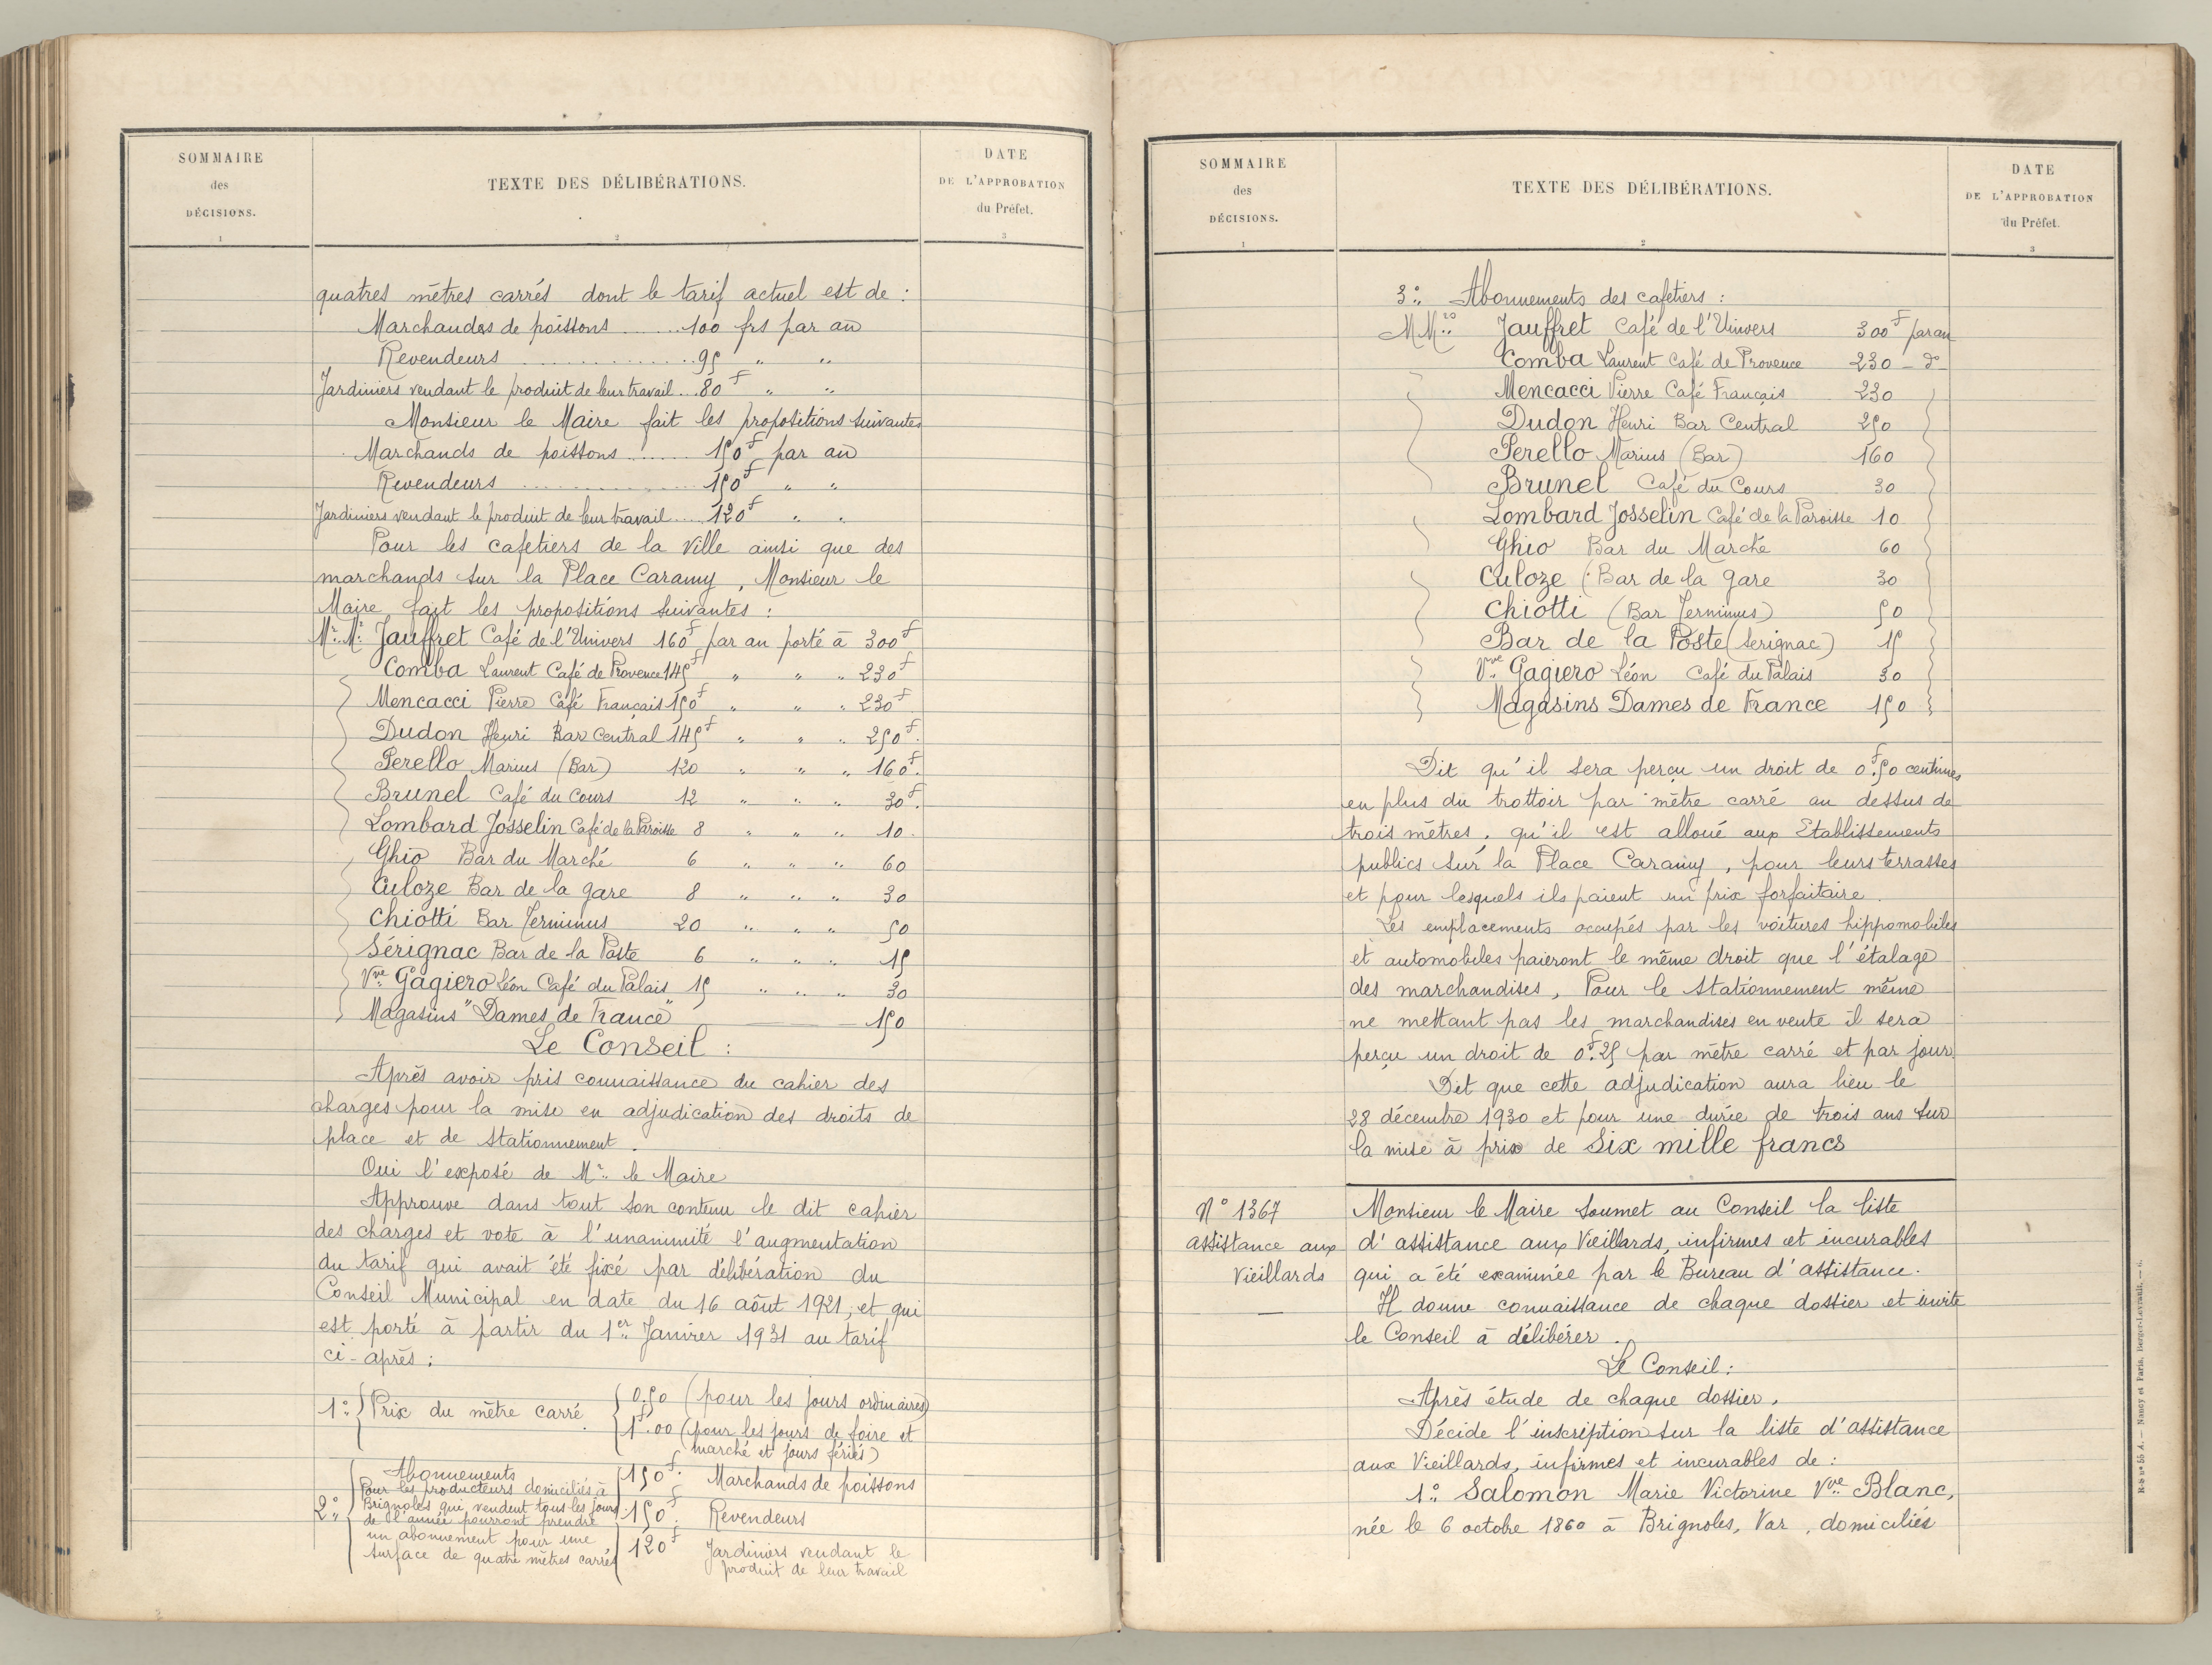 SOMMAIRE
des
DÉCISIONS.
1
TEXTE DES DÉLIBÉRATIONS.
2
DATE
DE L'APPROBATION
du Préfet.
3
quatres mètres carrés dont le tarif actuel est de :
Marchandes de poissons ........ 100 frs par an
Revendeurs .................. 95 " "
Jardiniers vendant le produit de leur travail ... 80f " "
Monsieur le Maire fait les propositions suivantes
Marchands de poissons ........ 150f par an
Revendeurs .................. 150f " "
Jardiniers vendant le produit de leur travail .... 120f " "
Pour les cafetiers de la ville ainsi que des
marchands sur la Place Caramy, Monsieur le
Maire fait les propositions suivantes :
Mr.Mr. Jauffret Café de l'Univers 160f par an porté à 300f
Comba Laurent Café de Provence 145f " " " 230f
Mencacci Pierre Café Français 150f " " " 230f
Dudon Henri Bar Central 145f " " " 250f.
Perello Marius (Bar) 120 " " " 160f.
Brunel Café du Cours 12 " " " 30f.
Lombard Josselin Café de la Paroisse 8 " " " 10.
Ghio Bar du Marché 6 " " " 60
Culoze Bar de la gare 8 " " " 30
Chiotti Bar Terminus 20 " " " 50
Sérignac Bar de la Poste 6 " " " 15
Vve Gagiero Léon Café du Palais 15 " " " 30
Magasins "Dames de France" ——— 150
Le Conseil :
Après avoir pris connaissance du cahier des
charges pour la mise en adjudication des droits de
place et de stationnement.
Oui l'exposé de Mr. le Maire
Approuve dans tout son contenu le dit cahier
des charges et vote à l'unanimité l'augmentation
du tarif qui avait été fixé par délibération du
Conseil Municipal en date du 16 aôut 1921, et qui
est porté à partir du 1er Janvier 1931 au tarif
ci-après :
1° Prix du mètre carré. 0.50 (pour les jours ordinaires)
1f.00 (pour les jours de foire et
marché et jours fériés)
2° Abonnements
Pour les producteurs domiciliés à
Brignoles qui vendent tous les jours
de l'année pourront prendre
un abonnement pour une
surface de quatre mètres carrés
150f. Marchands de poissons
150f. Revendeurs
120f Jardiniers vendant le
produit de leur travail
SOMMAIRE
des
DÉCISIONS.
1
TEXTE DES DÉLIBÉRATIONS.
2
DATE
DE L'APPROBATION
du Préfet.
3
3° Abonnements des cafetiers :
MMrs Jauffret Café de l'Univers 300f par an
Comba Laurent Café de Provence 230 - d°
Mencacci Pierre Café Français 230
Dudon Henri Bar Central 250
Perello Marius (Bar) 160
Brunel Café du Cours 30
Lombard Josselin Café de la Paroisse 10
Ghio Bar du Marché 60
Culoze (Bar de la gare 30
Chiotti (Bar Terminus) 50
Bar de la Poste (Serignac) 15
Vve Gagiero Léon Café du Palais 30
Magasins Dames de France 150
Dit qu'il sera perçu un droit de 0f.50 centimes
en plus du trottoir par mètre carré au dessus de
trois mètres, qu'il est alloué aux Etablissements
publics sur la Place Caramy, pour leurs terrasses
et pour lesquels ils paient un prix forfaitaire.
Les emplacements occupés par les voitures hippomobiles
et automobiles paieront le même droit que l'étalage
des marchandises, Pour le stationnement même
ne mettant pas les marchandises en vente il sera
perçu un droit de 0f.25 par mètre carré et par jour.
Dit que cette adjudication aura lieu le
28 décembre 1930 et pour une durée de trois ans sur
la mise à prix de Six mille francs
N° 1367
assistance aux
Vieillards
Monsieur le Maire soumet au Conseil la liste
d'assistance aux Vieillards, infirmes et incurables
qui a été examinée par le Bureau d'assistance.
Il donne connaissance de chaque dossier et invite
le Conseil à délibérer.
Le Conseil :
Après étude de chaque dossier,
Décide l'inscription sur la liste d'assistance
aux Vieillards, infirmes et incurables de :
1° Salomon Marie Victorine Vve Blanc,
née le 6 octobre 1860 à Brignoles, Var, domiciliés
Nancy et Paris, Berger-Levrault. — 6.